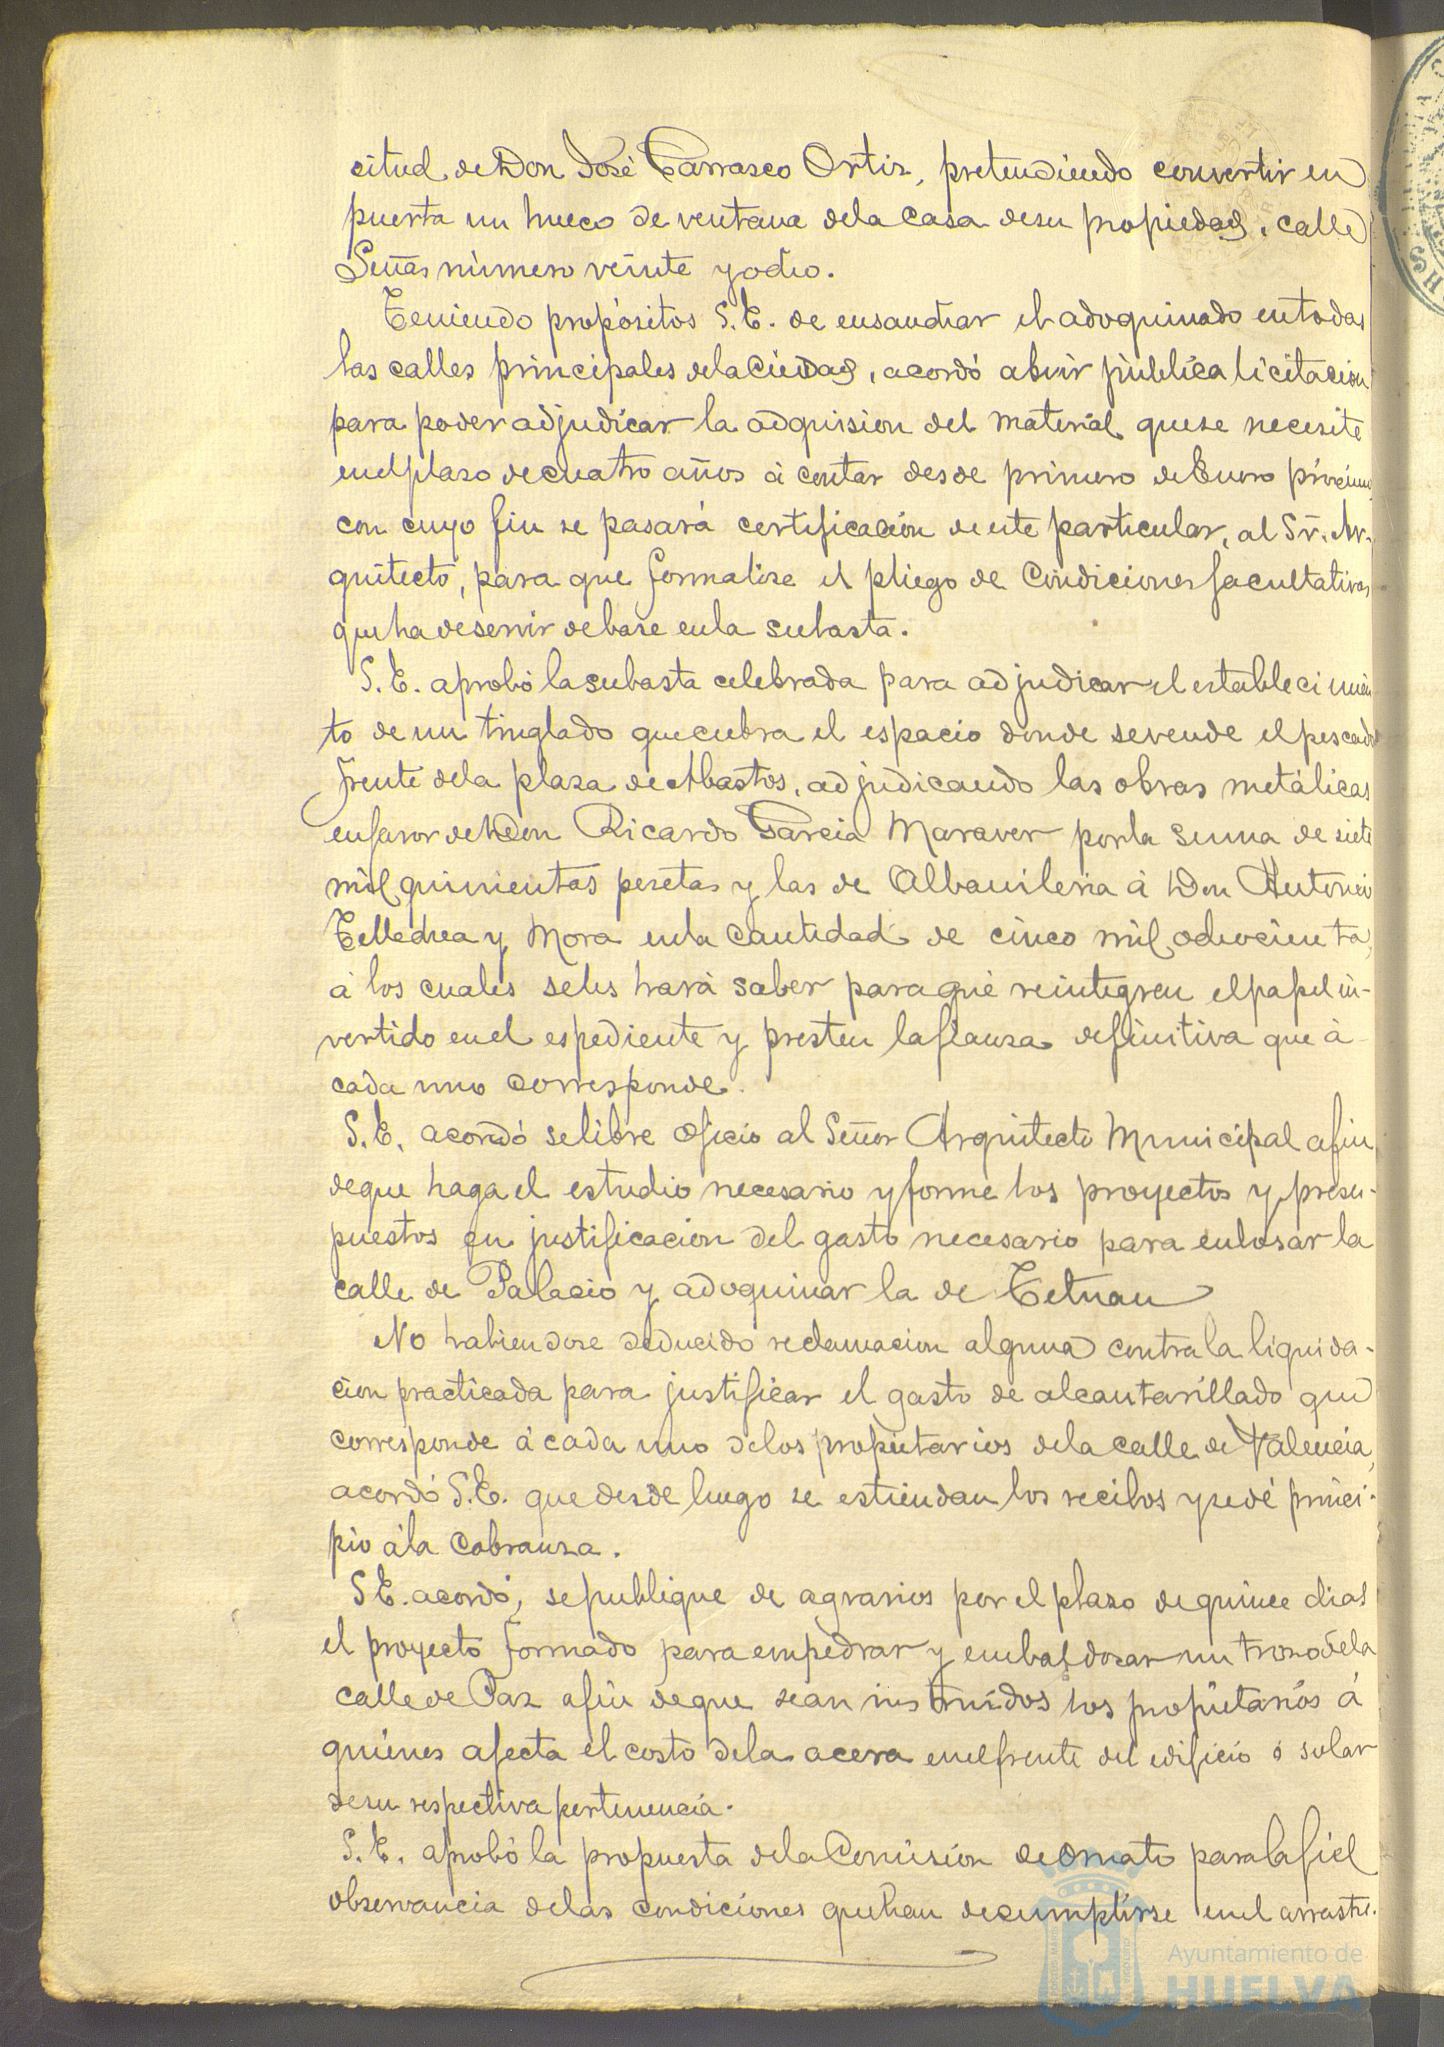 citud de Don José Carrasco Ortiz, pretendiendo convertir en
puerta un hueco de ventana de la casa de su propiedad, calle
Señas número veinte y ocho.
Teniendo propósitos S.E. de ensanchar el adoquinado en todas
las calles principales de la Ciudad, acordó abrir pública licitacion
para poder adjudicar la adquision del material que se necesite
en el plazo de cuatro años á contar desde primero de Enero próximo
con cuyo fin se pasará certificación de este particular, al Sr. Ar-
quitecto, para que formalize el pliego de Condiciones facultativas
que ha de servir de base en la subasta.
S.E. aprobó la subasta celebrada para adjudicar el establecimien
to de un tinglado que cubra el espacio donde se vende el pescado
frente de la plaza de Abastos, adjudicando las obras metálicas
en favor de Don Ricardo Garcia Maraver por la suma de siete
mil quinientas pesetas y las de Albañileria á Don Antonio
Tellechea y Mora en la Cantidad de cinco mil ochocientas,
á los cuales se les hará saber para que reintegren el papel in-
vertido en el espediente y presten la fianza definitiva que á
cada uno corresponde.
S.E. acordó se libre oficio al Señor Arquitecto Municipal afin
de que haga el estudio necesario y forme los proyectos y presu-
puestos en justificacion del gasto necesario para enlosar la
calle de Palacio y adoquinar la de Tetuan
No habiendose deducido reclamacion alguna contra la liquida-
cion practicada para justificar el gasto de alcantarillado que
corresponde á cada uno de los propietarios de la calle de Valencia,
acordó S.E. que desde luego se estiendan los recibos y se dé princi-
pio á la Cobranza.
S.E. acordó, se publique de agravios por el plazo de quince dias
el proyecto formado para empedrar y embaldosar un trozo de la
calle de Paz afin de que sean instruidos los propietarios á
quienes afecta el costo de la acera en el frente del edificio ó solar
de su respectiva pertenencia.
S.E. aprobó la propuesta de la Comisión de Ornato para la fiel
observancia de las condiciones que han de cumplirse en el arrastre.
Ayuntamiento de
HUELVA